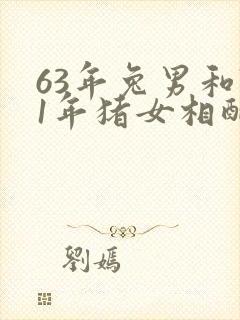 63年兔男和
1年猪女相配
劉嫣